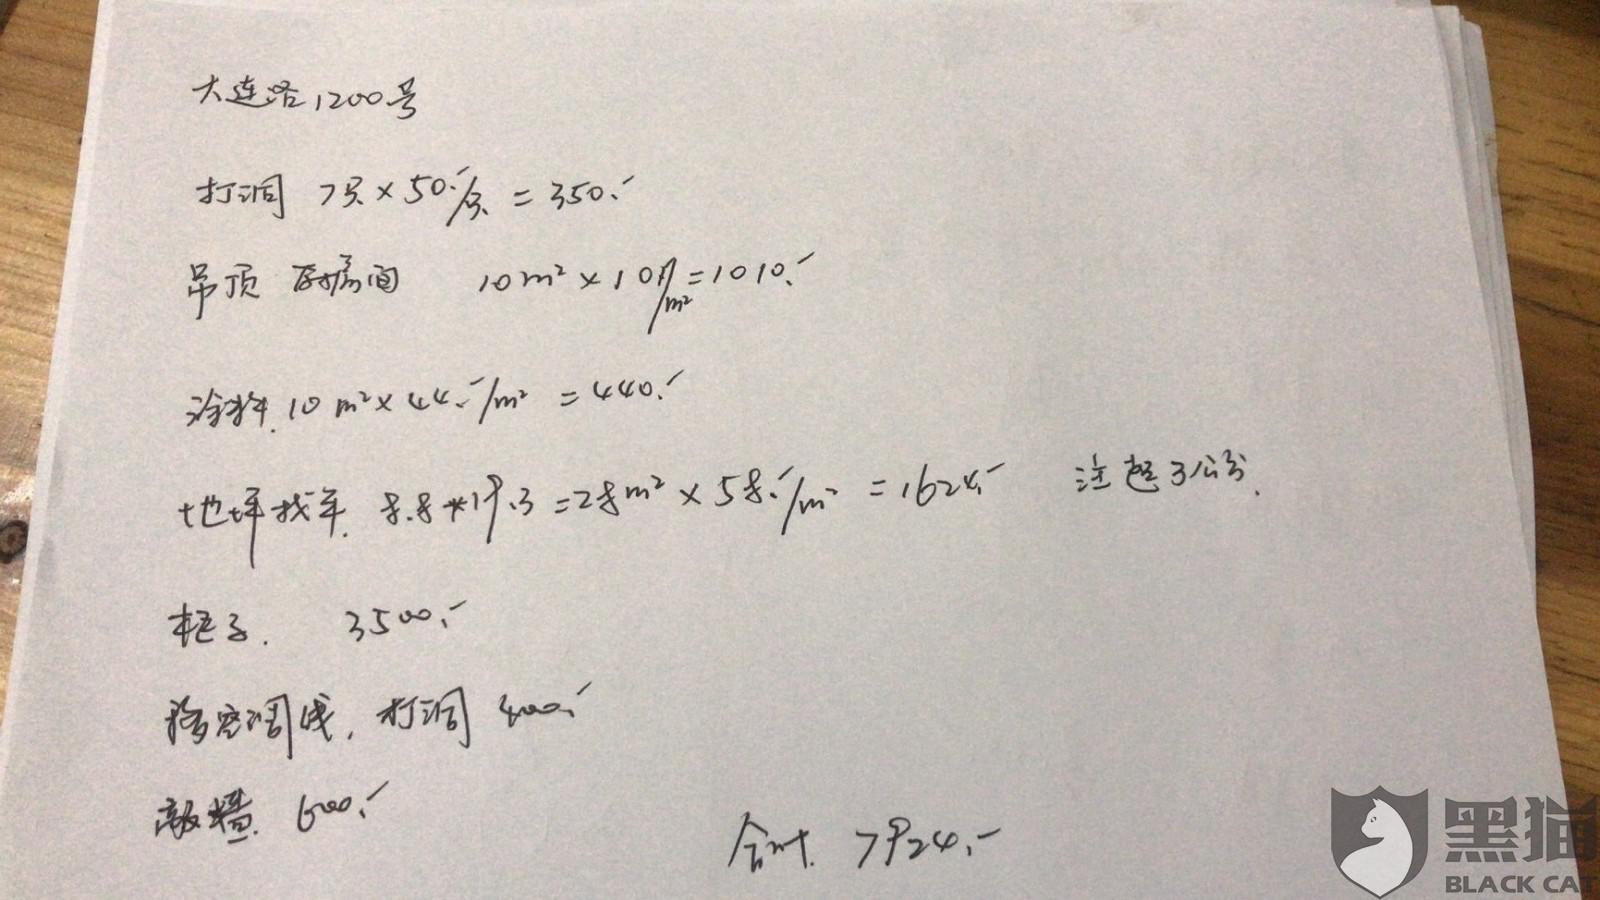 大连路1200号
打洞 7只×50.-/只 = 350.-
吊顶 房间 10m²×101/m²=1010.-
涂料. 10m²×44.-/m² = 440.-
地坪找平. 8.8+19.3=28m²×58.-/m² = 1624.- 注:3公分.
柜子. 3500.-
移空调线, 打洞 400.-
敲墙. 600.-
合计. 7924.-
黑猫
BLACK CAT